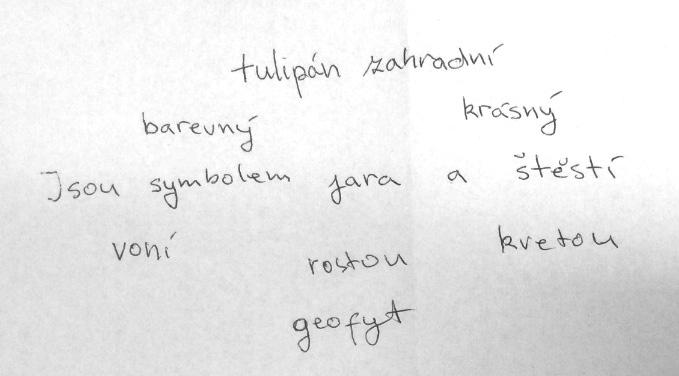 tulipán zahradní
barevný krásný
Jsou symbolem jara a štěstí
voní rostou kvetou
geofyt